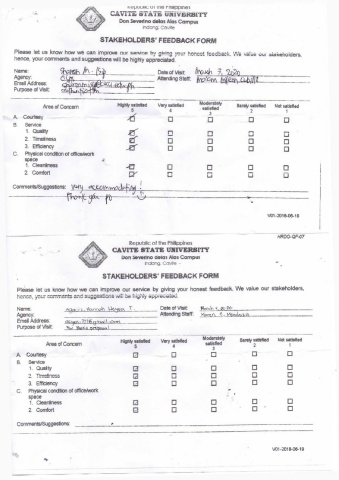 Republic of the Philippines
CAVITE STATE UNIVERSITY
Don Severino delas Alas Campus
Indang, Cavite
STAKEHOLDERS' FEEDBACK FORM
Please let us know how we can improve our service by giving your honest feedback. We value our stakeholders,
hence, your comments and suggestions will be highly appreciated.
Name: Date of Visit: March 2020
Agency: Attending Staff:
Email Address:
Purpose of Visit:
Area of Concern Highly satisfied 5 Very satisfied 4 Moderately satisfied 3 Barely satisfied 2 Not satisfied 1
A. Courtesy
B. Service
1. Quality
2. Timeliness
3. Efficiency
C. Physical condition of office/work
space
1. Cleanliness
2. Comfort
Comments/Suggestions: Very accommodating!
Thank you po
V01-2018-06-18
HRDO-QF-07
Republic of the Philippines
CAVITE STATE UNIVERSITY
Don Severino delas Alas Campus
Indang, Cavite
STAKEHOLDERS' FEEDBACK FORM
Please let us know how we can improve our service by giving your honest feedback. We value our stakeholders,
hence, your comments and suggestions will be highly appreciated.
Name: Date of Visit:
Agency: Attending Staff:
Email Address:
Purpose of Visit:
Area of Concern Highly satisfied 5 Very satisfied 4 Moderately satisfied 3 Barely satisfied 2 Not satisfied 1
A. Courtesy
B. Service
1. Quality
2. Timeliness
3. Efficiency
C. Physical condition of office/work
space
1. Cleanliness
2. Comfort
Comments/Suggestions:
V01-2018-06-18